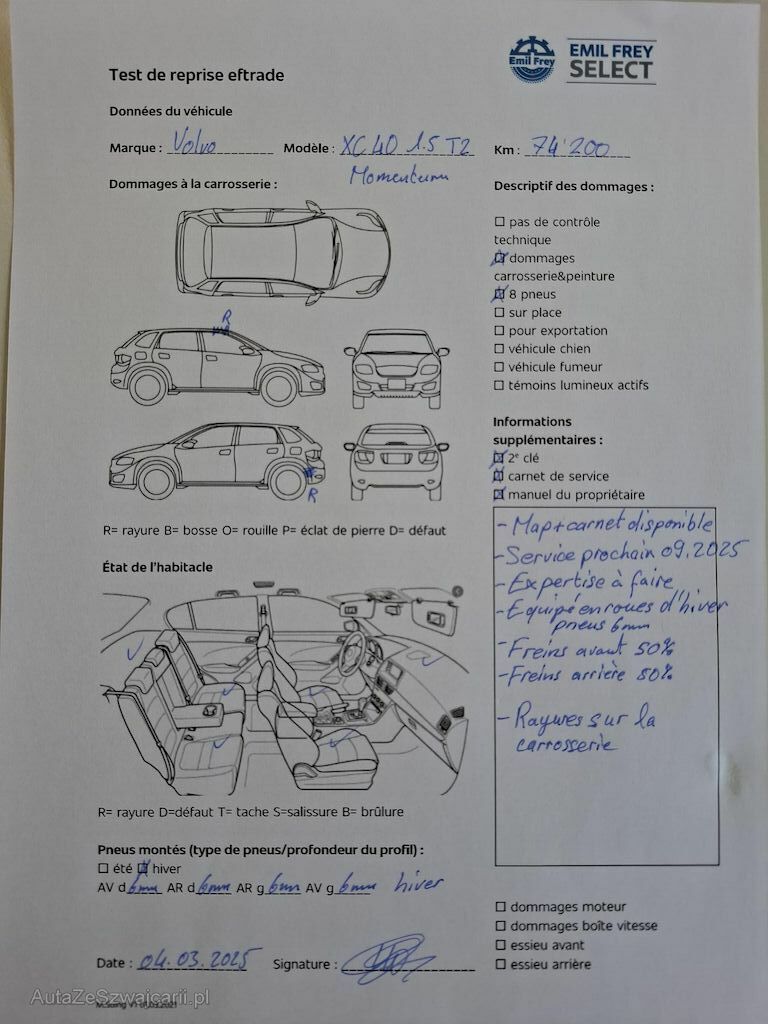 Emil Frey
EMIL FREY
SELECT
Test de reprise eftrade
Données du véhicule
Marque : Volvo Modèle : XC40 1.5 T2 Km : 74'200
Momentum
Dommages à la carrosserie :
R
R
R= rayure B= bosse O= rouille P= éclat de pierre D= défaut
État de l'habitacle
R= rayure D=défaut T= tache S=salissure B= brûlure
Pneus montés (type de pneus/profondeur du profil) :
☐ été ☒ hiver
AV d 6mm AR d 6mm AR g 6mm AV g 6mm hiver
Date : 04.03.2025 Signature :
Descriptif des dommages :
☐ pas de contrôle
technique
☒ dommages
carrosserie&peinture
☒ 8 pneus
☐ sur place
☐ pour exportation
☐ véhicule chien
☐ véhicule fumeur
☐ témoins lumineux actifs
Informations
supplémentaires :
☒ 2e clé
☒ carnet de service
☒ manuel du propriétaire
- Map+carnet disponible
- Service prochain 09.2025
- Expertise à faire
- Equipé en roues d'hiver
pneus 6mm
- Freins avant 50%
- Freins arrière 80%
- Rayures sur la
carrosserie
☐ dommages moteur
☐ dommages boîte vitesse
☐ essieu avant
☐ essieu arrière
AutaZeSzwajcarii.pl